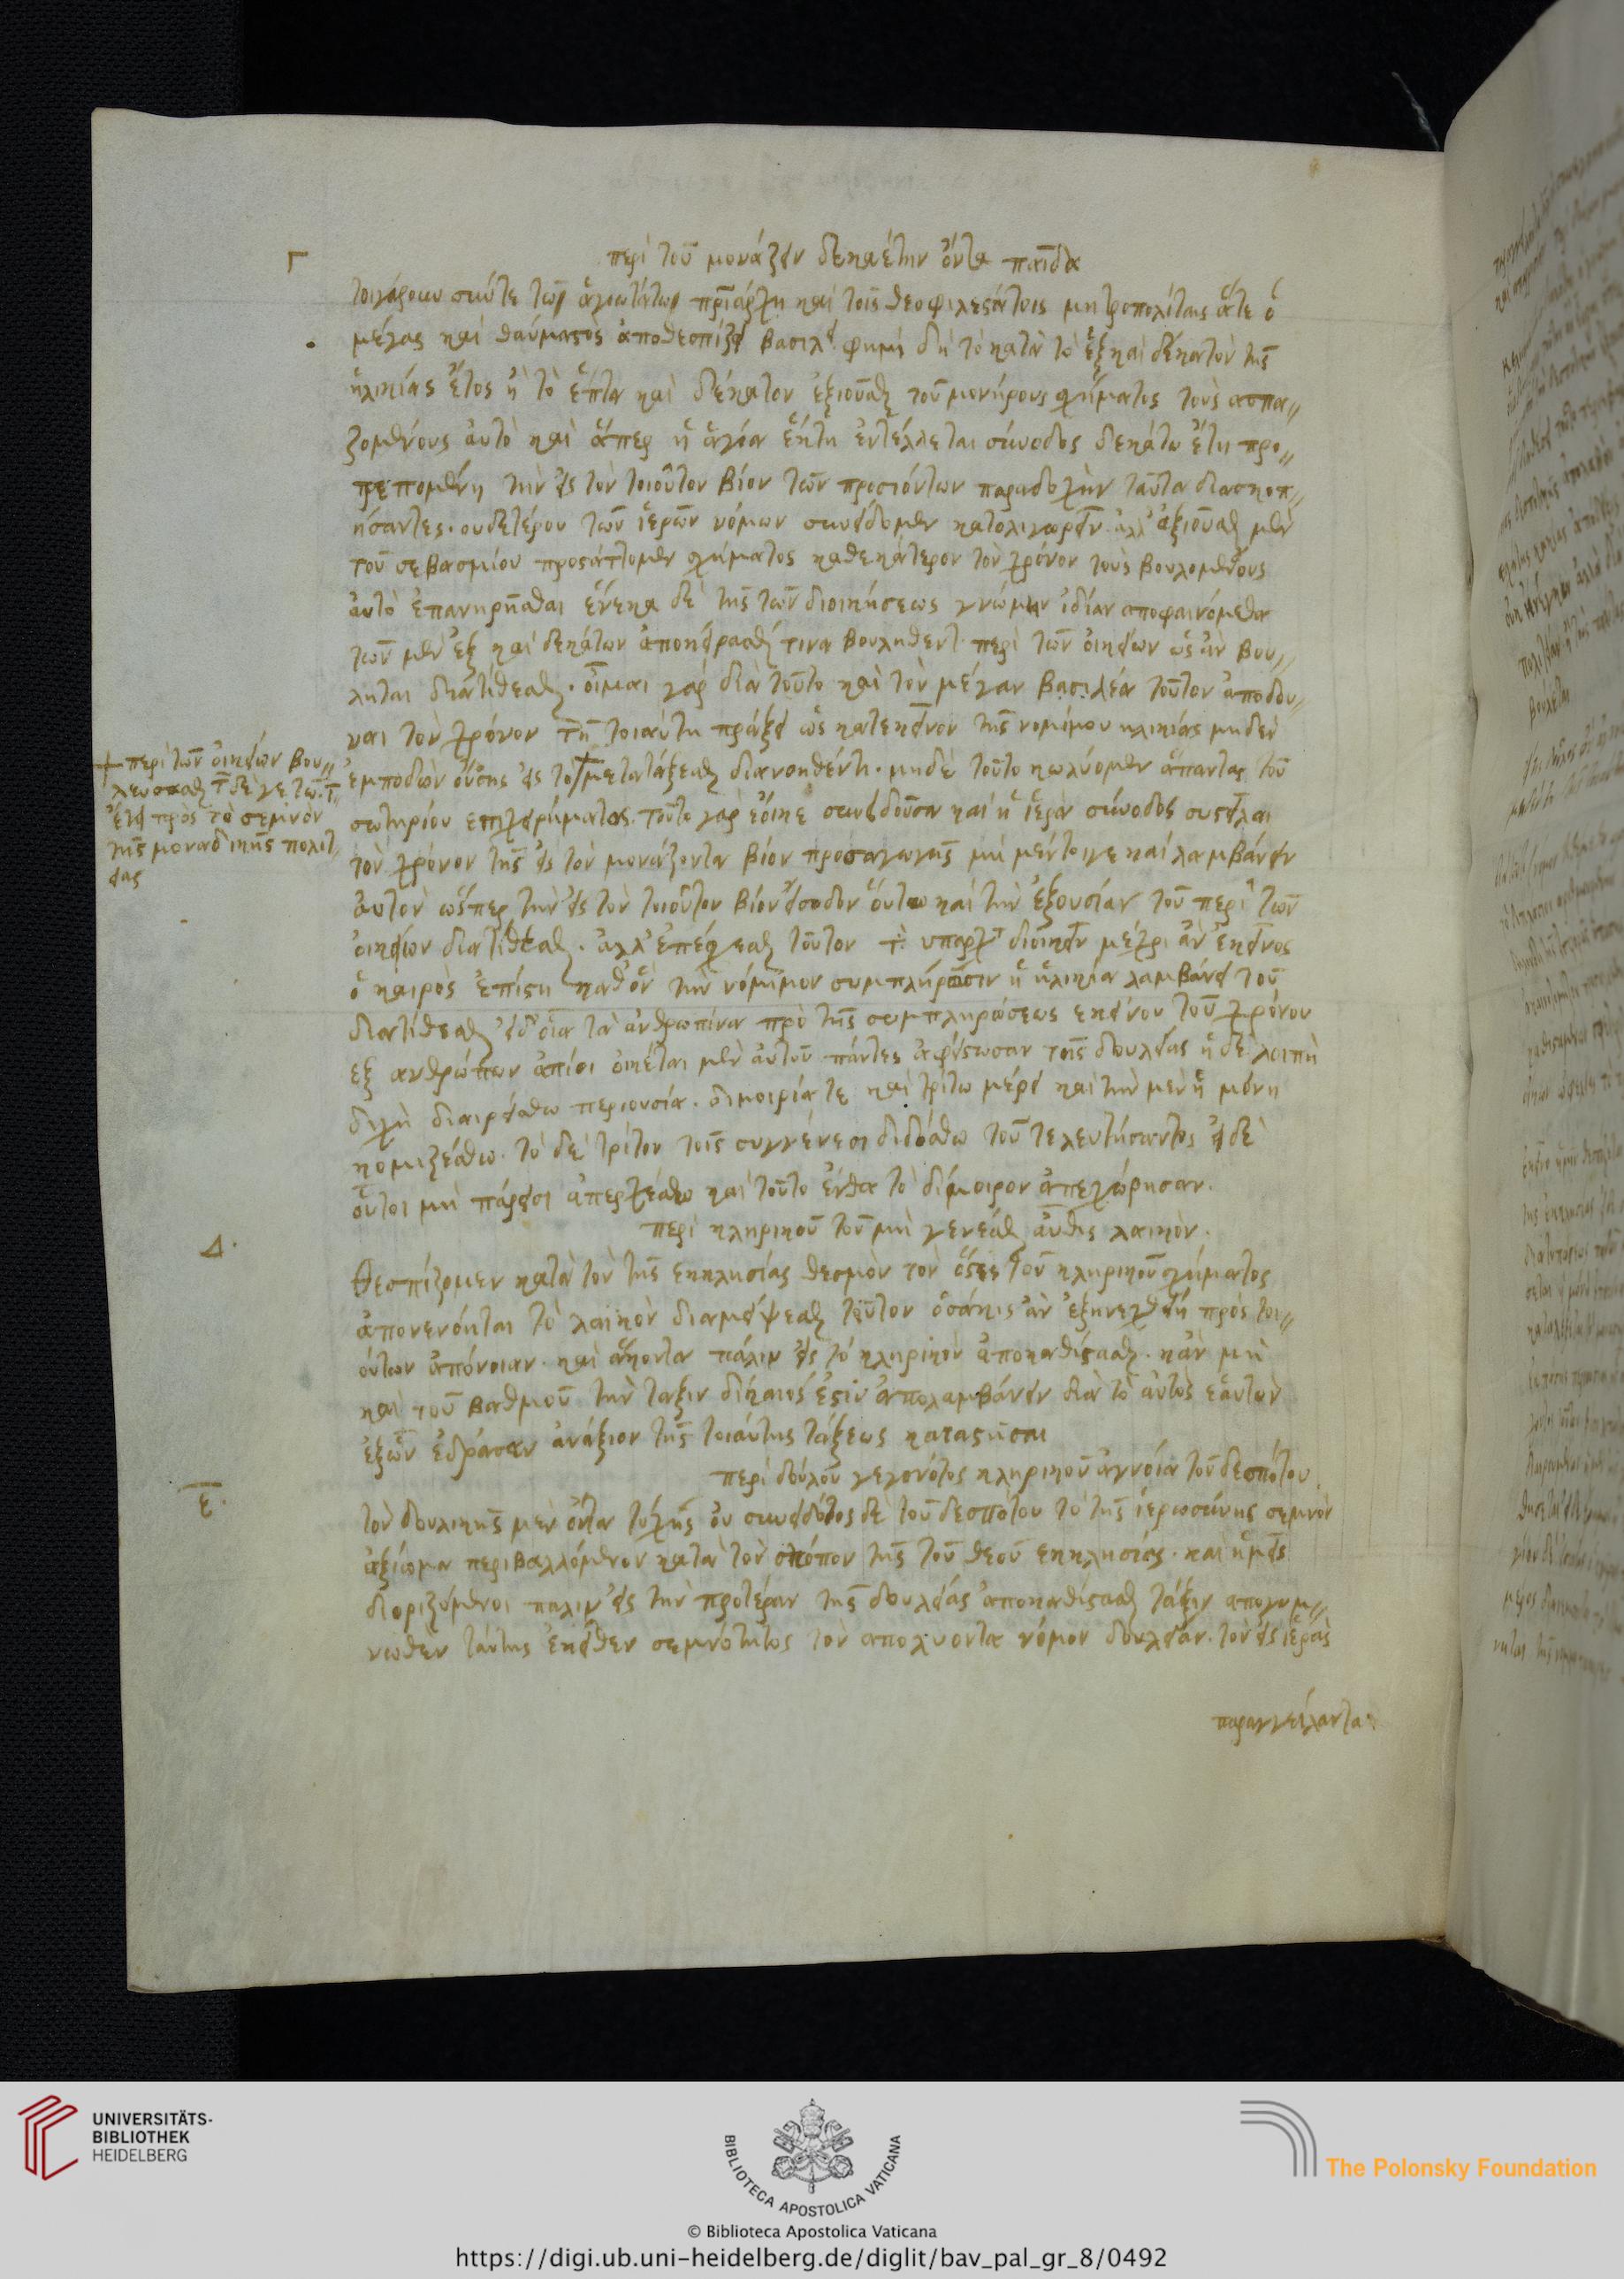 Γ
περὶ τοῦ μονάζειν δεκαέτην ὄντα παῖδα
τοιγαροῦν σύ τε τῶν ἁγιωτάτων πριάρχη καὶ τοῖς θεοφιλεστάτοις μητροπολίταις ἅτε ὁ
μέγας καὶ θαύμαστος ἀποθεσπίζει βασιλ φημὶ δὴ τὸ κατὰ τὸ ἓξ καὶ δέκατον τῆς
ἡλικίας ἔτος ἢ τὸ ἕπτα καὶ δέκατον ἐξιοῦσθαι τοῦ μονήρους σχήματος τοὺς ασπα〃
ζομένους ἀυτὸ καὶ ἅπερ ἡ ἁγία ἕκτη ἐντέλλεται σύνοδος δεκάτω ἔτη προ〃
τρεπομένη τὴν εἰς τὸν τοιοῦτον βίον τῶν προσιόντων παραδοχὴν ταῦτα διασκοπ〃
ήσαντες. ουδετέρου τῶν ἱερῶν νόμων συνείδομεν κατολιγωρεῖν ἀλλ' ἀξιοῦσθαι μὲν
τοῦ σεβασμίου προστάττομεν σχήματος καθεκάτερον τὸν χρόνον τοὺς βουλομένους
ἀυτὸ ἐπανηρῆσθαι ἕνεκα δὲ τῆς τῶν διοικήσεως γνώμην ἰδίαν αποφαινόμεθα
τῶν μὲν ἓξ καὶ δεκάτων ἀποκείρασθαί τινα βουληθεντ περὶ τῶν οἰκείων ὡς ἂν βου〃
ληται διατίθεσθαι. οἶμαι γὰρ διὰ τοῦτο καὶ τὸν μέγαν βασιλέα τοῦτον ἀποδου〃
ναι τὸν χρόνον τῆ τοιαύτη πράξει ὡς κατεκεῖνον τῆς νομίμου ηλικίας μηδὲν
ἐμποδὼν οὔσης εἰς τὸ μετατάξεσθαι διανοηθέντι. μηδὲ τοῦτο κωλύομεν ἅπαντας τοῦ
σωτηρίου επιχειρήματος. τοῦτο γὰρ ἔοικε συνιδοῦσα καὶ ἡ ἱερὰ σύνοδος συστεῖλαι
τὸν χρόνον τῆς εἰς τὸν μονάζοντα βίον προσαγωγῆς μὴ μέντοιγε καὶ λαμβάνειν
ἀυτὸν ὥσπερ τὴν εἰς τὸν τοιοῦτον βίον εἴσοδον ὅυτω καὶ τὴν ἐξουσίαν τοῦ περὶ τῶν
ὀικείων διατίθεσθαι. ἀλλ' ἐπέχεσθαι τοῦτον τ υπαρχ διοικεῖν μέχρι ἂν ἐκεῖνος
ὁ καιρὸς ἐπίστη καθ' ὃν τὴν νόμιμον συμπλήρωσιν ἡ ἡλικία λαμβάνει τοῦ
διατίθεσθαι εἰ δ' οἷα τὰ ἀνθρωπίνα πρὸ τῆς συμπληρώσεως εκείνου τοῦ χρόνου
εξ ανθρώπων ἀπίοι ὀικέται μὲν ἀυτοῦ πάντες ἀφείσωσαν τοῖς δουλείας ἡ δὲ λοιπὴ
διχῆ διαιρείσθω περιουσία. διμοιρία τε καὶ τρίτω μέρει καὶ τὴν μὲν ἡ μόνη
κομιζέσθω. τὸ δὲ τρίτον τοῖς συγγένεσι διδόσθω τοῦ τελευτήσαντος εἰ δὲ
οὗτοι μὴ πάρεισι ἀπερχέσθω καὶ τοῦτο ἔνθα τὸ δίμοιρον ἀπεχώρησαν.
+ περὶ τῶν ὀικείων βου〃
λευσασθαι τ δέ γε τῶ τ
ἔτει πρὸς τὸ σεμνὸν
τῆς μοναδικῆς πολιτ〃
είας
Δ.
περὶ κληρικοῦ τοῦ μὴ γενέσθαι ἄυθις λαικὸν.
Θεσπίζομεν κατὰ τὸν τῆς εκκλησίας θεσμὸν τὸν ὅστις τοῦ κληρικοῦ σχήματος
ἀπονενόηται τὸ λαικὸν διαμείψεσθαι τοῦτον ὁσάκις ἂν ἐξηνεχθείη πρὸς τοι〃
ούτων ἀπόνοιαν. καὶ ἄκοντα πάλιν εἰς τὸ κληρικὸν ἀποκαθίστασθαι. κἂν μὴ
καὶ τοῦ βαθμοῦ τὴν ταξιν δίκαιός ἐστιν ἀπολαμβάνειν διὰ τὸ ἀυτὸς ἑαυτὸν
ἐξ ὧν ἐδρασεν ἀνάξιον τῆς τοιάυτης τάξεως καταστῆσαι
ε.
περὶ δούλου γεγονότος κληρικοῦ ἀγνοία τοῦ δεσπότου.
τὸν δουλικῆς μὲν ὄντα τύχης ὀυ συνειδότος δὲ τοῦ δεσπότου τὸ τῆς ἱερωσύνης σεμνὸν
ἀξίωμα περιβαλλόμενον κατὰ τὸν σκόπον τῆς τοῦ θεοῦ εκκλησίας. καὶ ἡμεῖς
διοριζόμενοι παλιν εἰς τὴν προτέραν τῆς δουλείας ἀποκαθίστασθαι τάξιν απογυμ〃
νωθεν ταύτης ἐκεῖθεν σεμνότητος τὸν απολυοντα νόμον δουλείαν. τὸν εἰς ἱερὰς
παραγγείλαντα.
UNIVERSITÄTS-
BIBLIOTHEK
HEIDELBERG
BIBLIOTECA APOSTOLICA VATICANA
The Polonsky Foundation
© Biblioteca Apostolica Vaticana
https://digi.ub.uni-heidelberg.de/diglit/bav_pal_gr_8/0492